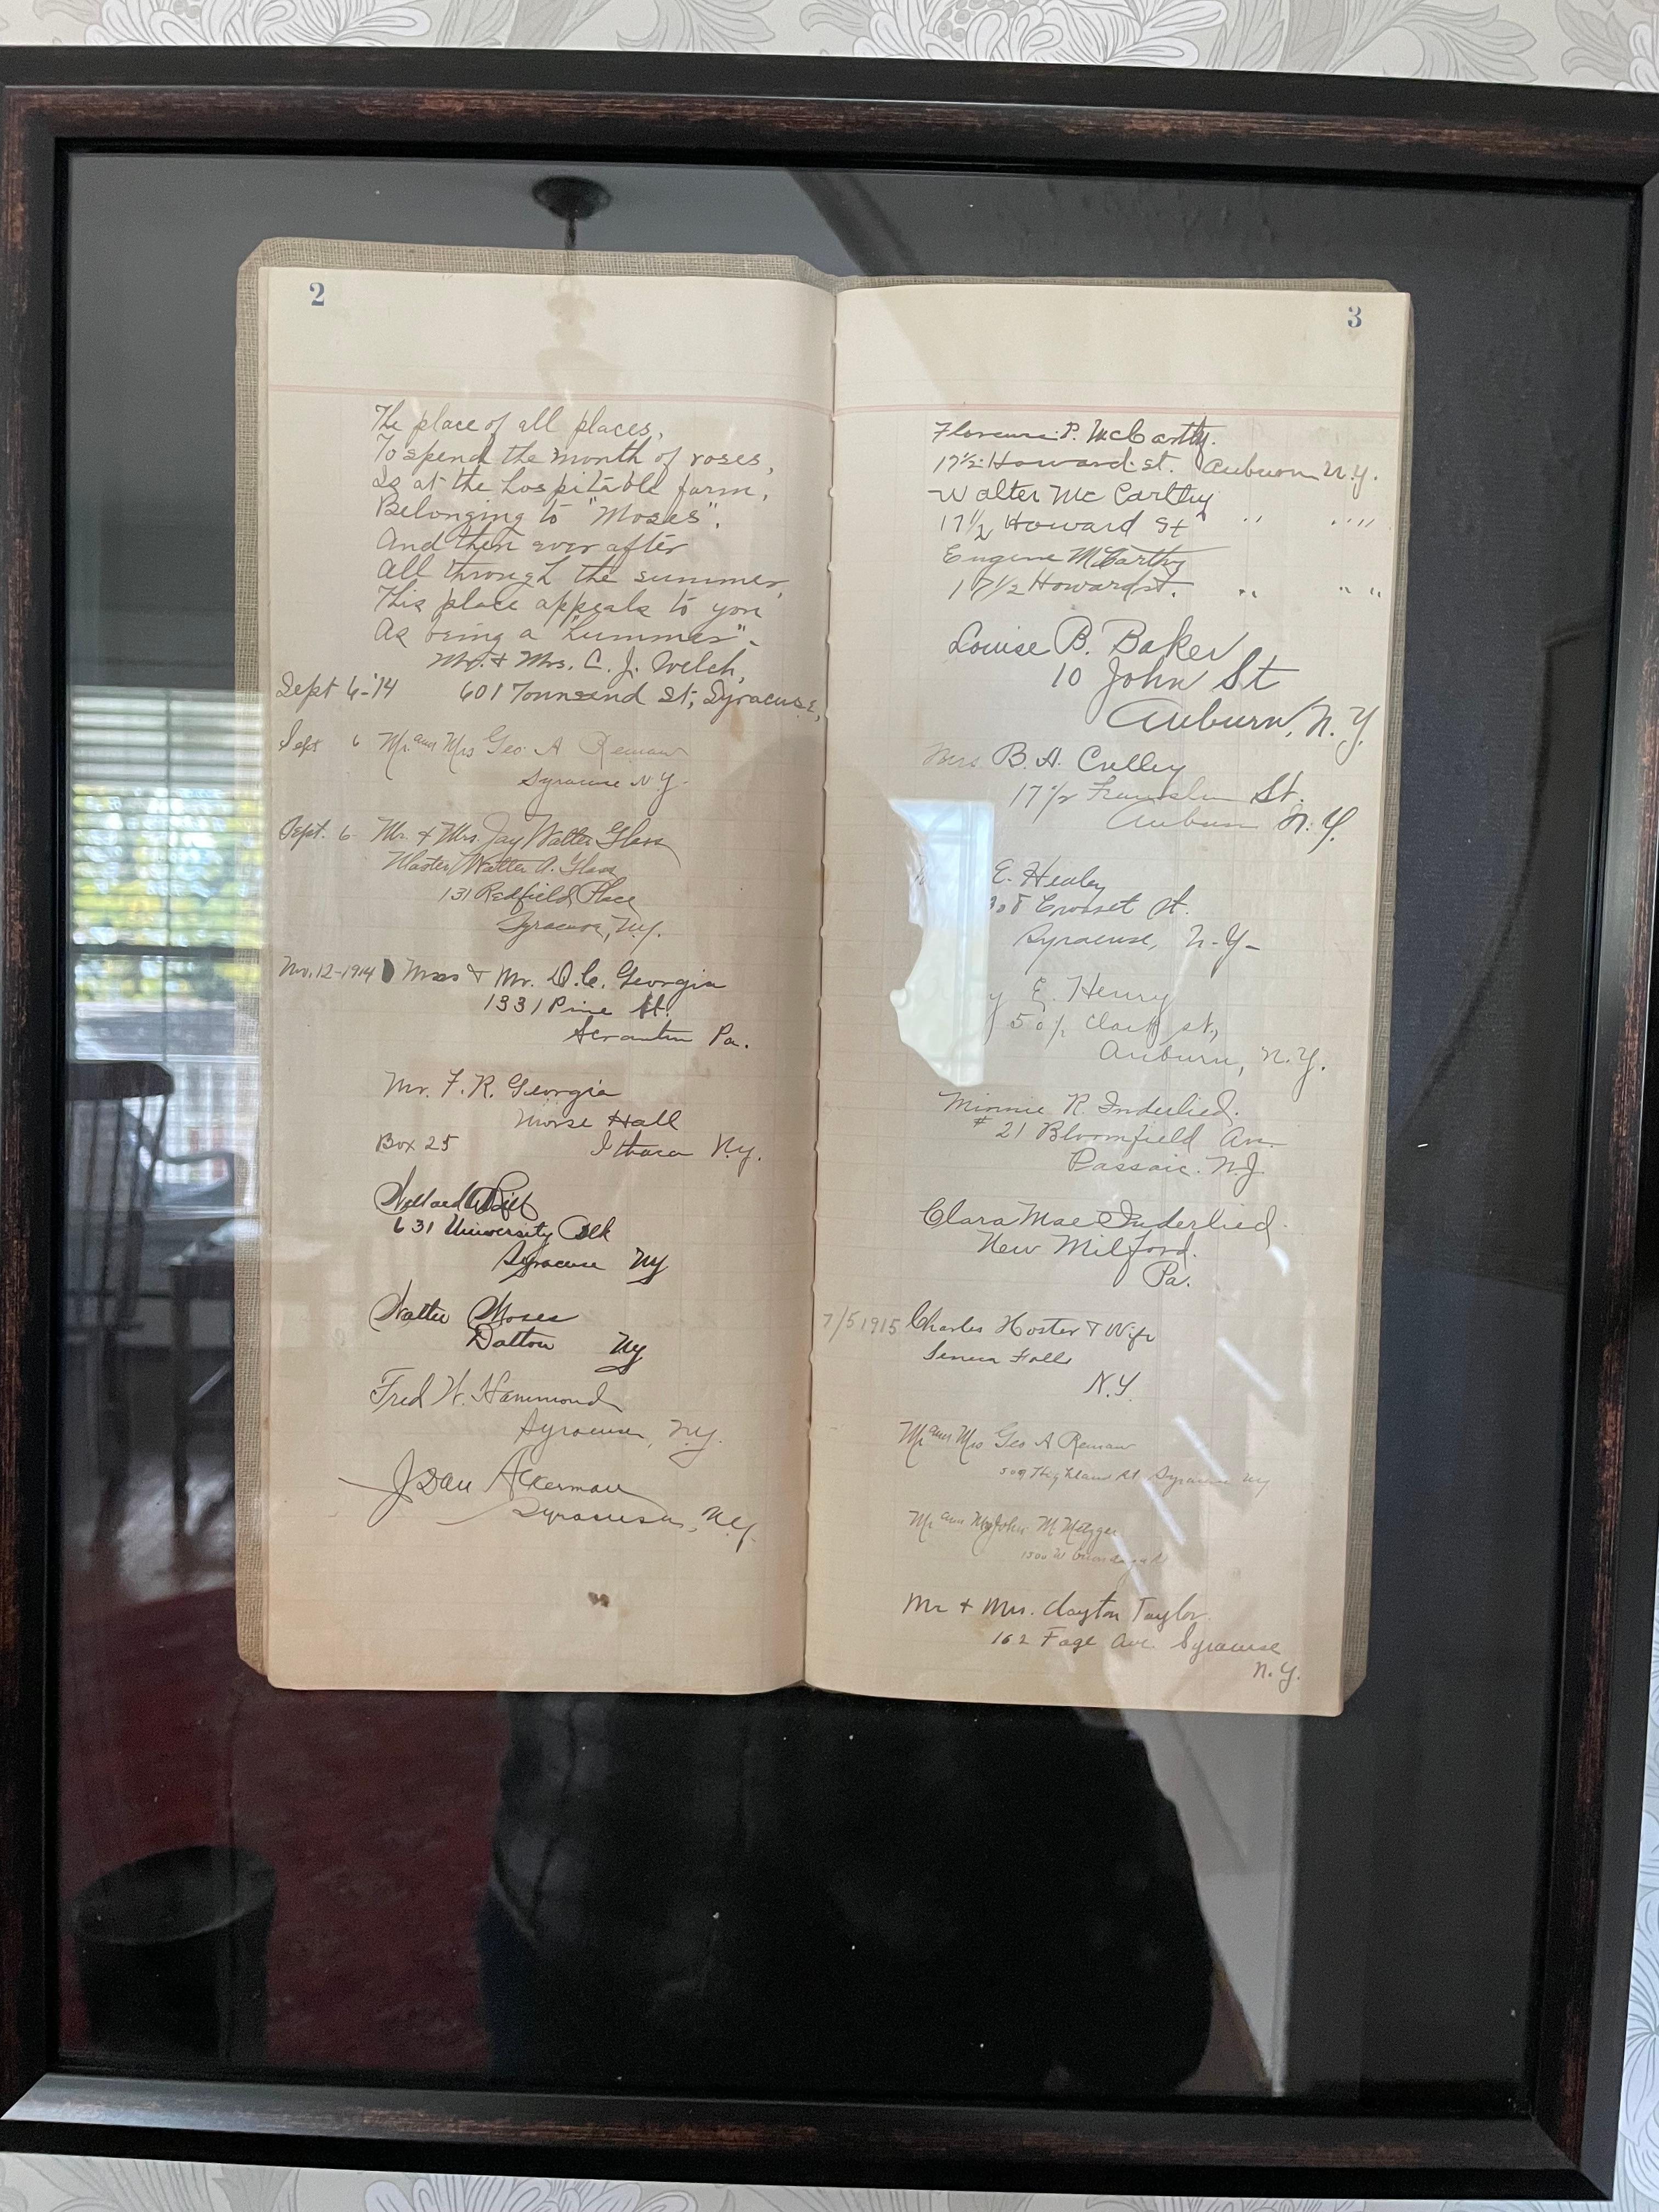 2
The place of all places,
To spend the month of roses,
Is at the hospitable farm,
Belonging to "Moses".
And then ever after
All through the summer,
This place appeals to you
As being a "hummer".
Mr. & Mrs. C. J. Welch,
Sept 6-'14 601 Townsend St, Syracuse,
Sept 6 Mr. and Mrs Geo. A
Syracuse N Y.
Sept. 6 Mr. & Mrs. Jay Walter Glass
Master Walter A. Glass
131 Redfield Place
Syracuse, N.Y.
Nov. 12-1914 & Mr. D. C. Georgia
1331 Pine St.
Scranton Pa.
Mr. F. R. Georgia
Morse Hall
Box 25 Ithaca N.Y.
Willard
631 University Blk
Syracuse NY
Walter Moses
Dalton NY
Fred W. Hammond
Syracuse, N.Y.
J Dan Ackerman
Syracuse, N.Y.
3
Florence P. McCarthy.
17½ Howard st. Auburn N.Y.
Walter McCarthy
17½ Howard St " " "
Eugene McCarthy
17½ Howard st. " " "
Louise B. Baker
10 John St
Auburn, N.Y.
Mrs B. A. Culley
17½ Franklin St.
Auburn N.Y.
E. Healy
08 Crosset St.
Syracuse, N-Y-
y E. Henry
50½ Clark st,
Auburn, N.Y.
Minnie R. Inderlied.
# 21 Bloomfield Ave
Passaic. N.J.
Clara Mae Inderlied.
New Milford.
Pa.
7/5 1915 Charles Hoster & Wife
Seneca Falls
N.Y
Mr and Mrs Geo A
509 Highland St Syracuse NY
Mr and Mrs John M Metzger
1500 W
Mr & Mrs. Clayton Taylor.
162 Fage Ave. Syracuse
N.Y.